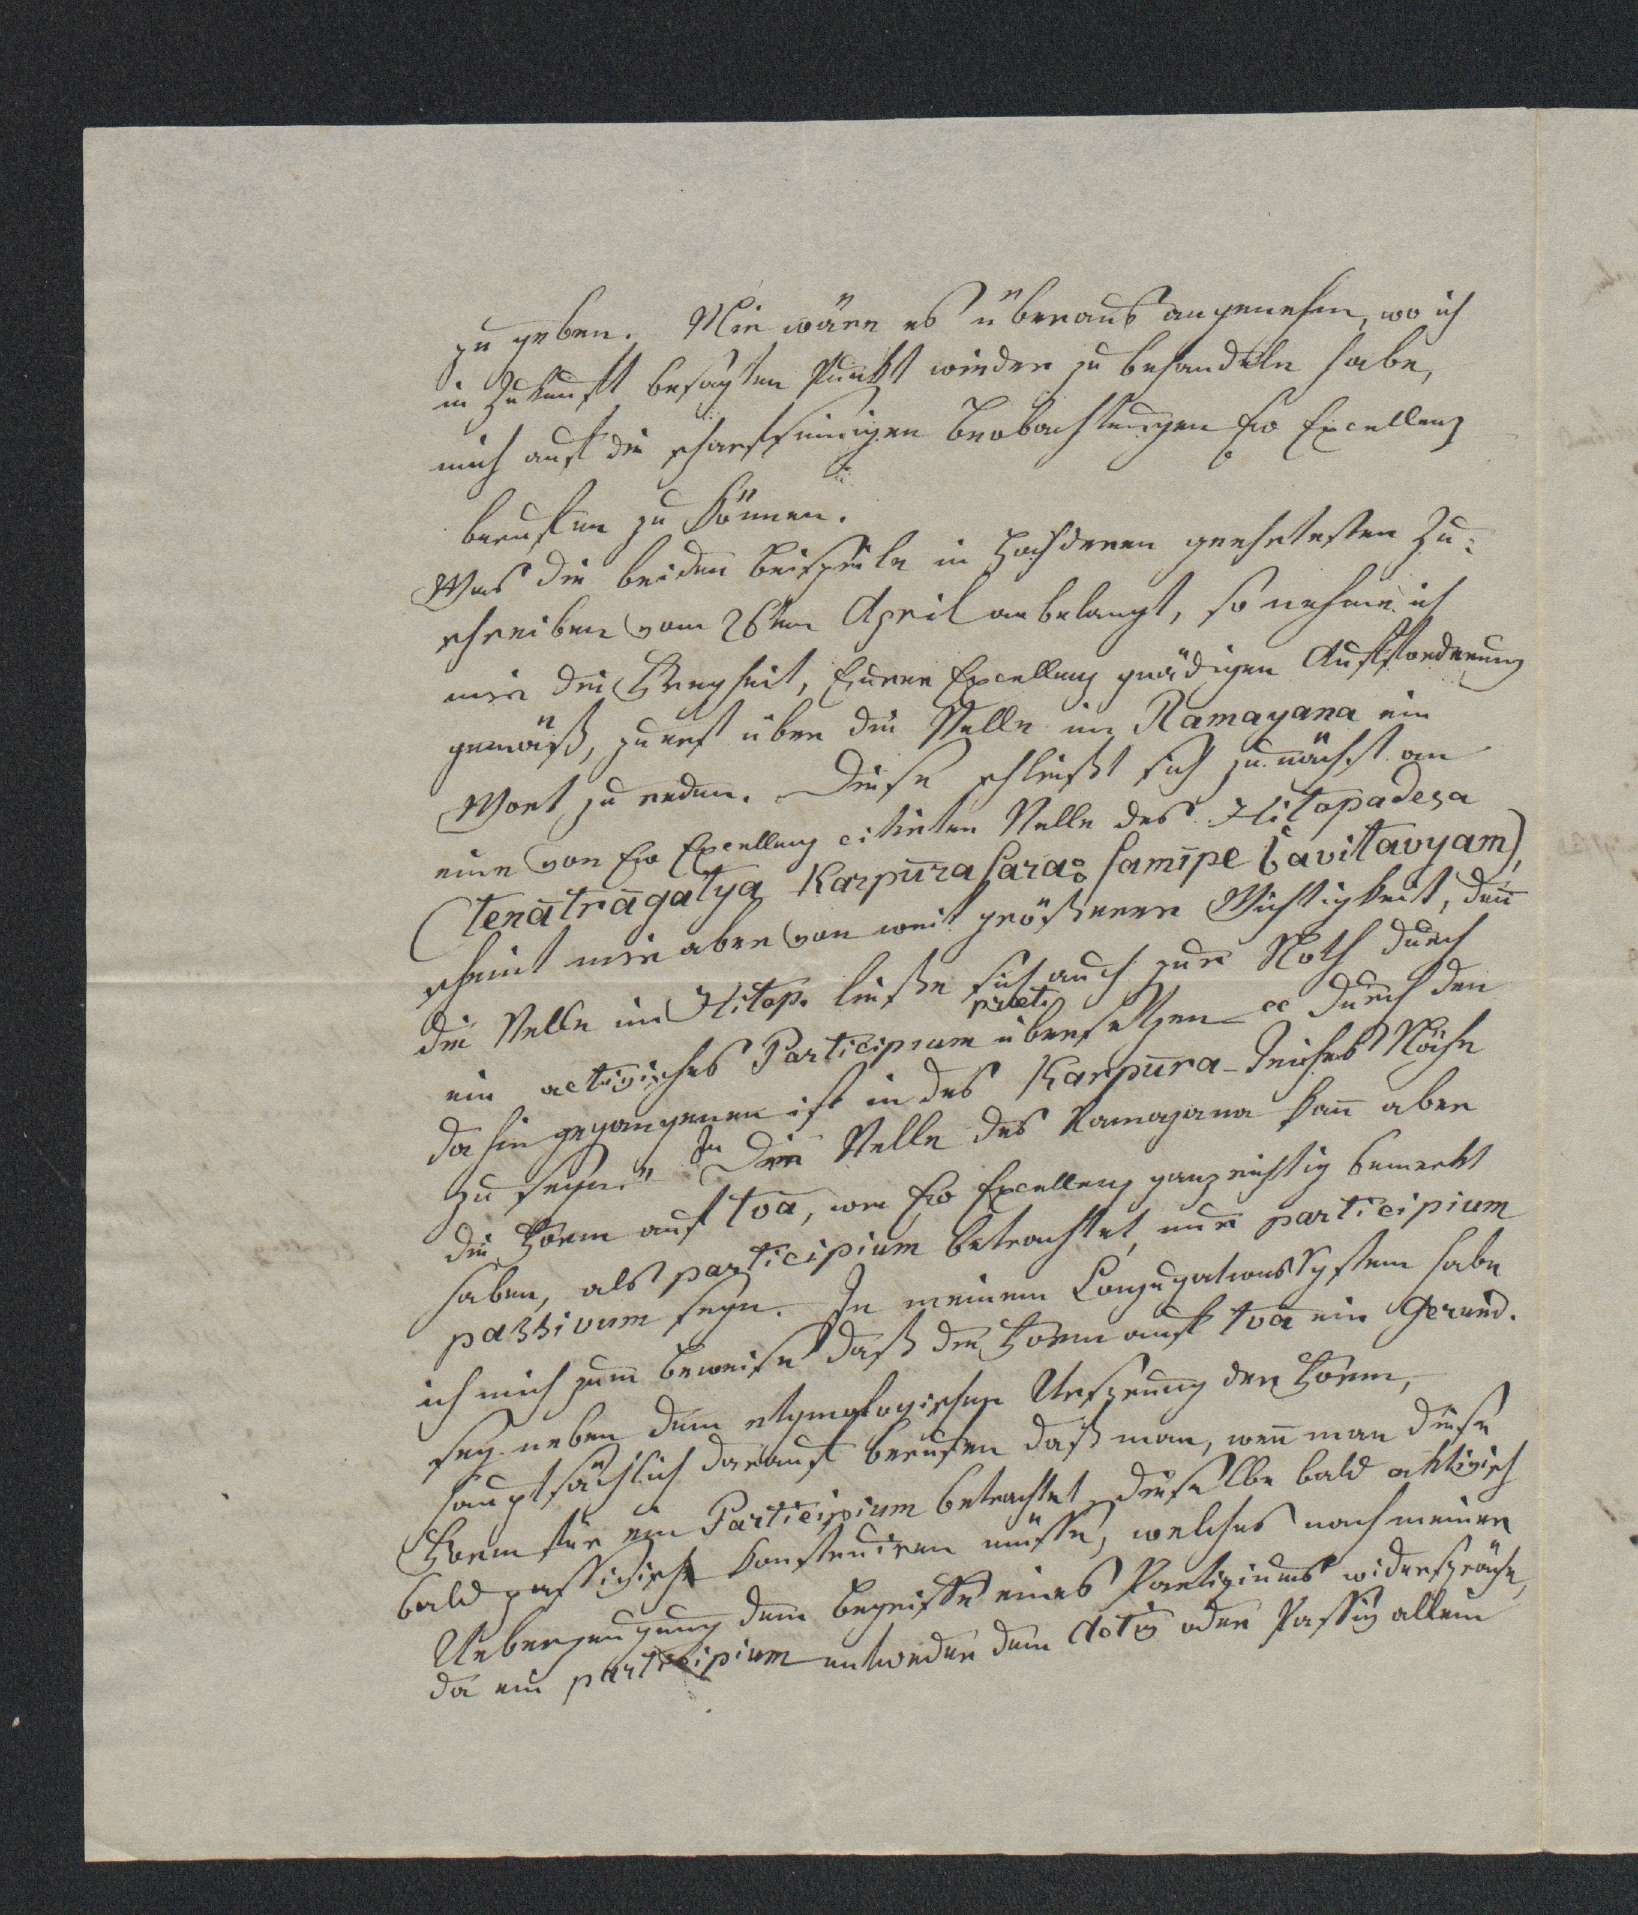 zu geben. Mir wäre es überaus angenehm, wo ich
in Zukunft besagten Punkt wieder zu behandeln habe,
mich auf die scharfsinnigen Beobachtungen Ew Excellenz
berufen zu können.
Was die beiden Beispiele in Hochderen geehrtesten Zu-
schreiben vom 26ten April anbelangt, so nehme ich
mir die Freyheit, Eurer Excellenz gnädigen Aufforderung
gemäß, zuerst über die Stelle im Ramayana ein
Wort zu reden. Diese schließt sich zunächst an
eine von Ew Excellenz citirten Stelle des Hitopadesa
(tenātrāgatya Karpūrasaraḥ samīpe bavitavyam),
scheint mir aber von weit größerer Wichtigkeit, deñ
die Stelle im Hitop. ließe sich auch zur Noth durch
ein activisches Participium praet. übersetzen „durch den
dahin gegangenen ist in des Karpūra-Teiches Nähe
zu seyn." In der Stelle des Ramayana kañ aber
die Form auf tvā, wie Ew Excellenz ganz richtig bemerkt
haben, als participium betrachtet, nur participium
passivum seyn. In meinem Conjugationssystem habe
ich mich zum Beweise daß die Form auf tvā ein Gerund.
sey neben dem etymologischen Ursprung der Form,
hauptsächlich darauf berufen daß man, weñ man diese
Form für ein Participium betrachtet, dieselbe bald aktivisch
bald passivisch konstruiren müsse, welches nach meiner
Ueberzeugung dem Begriffe eines Partizipiums widerspräche,
da ein participium entweder dem Activ oder Passiv allein